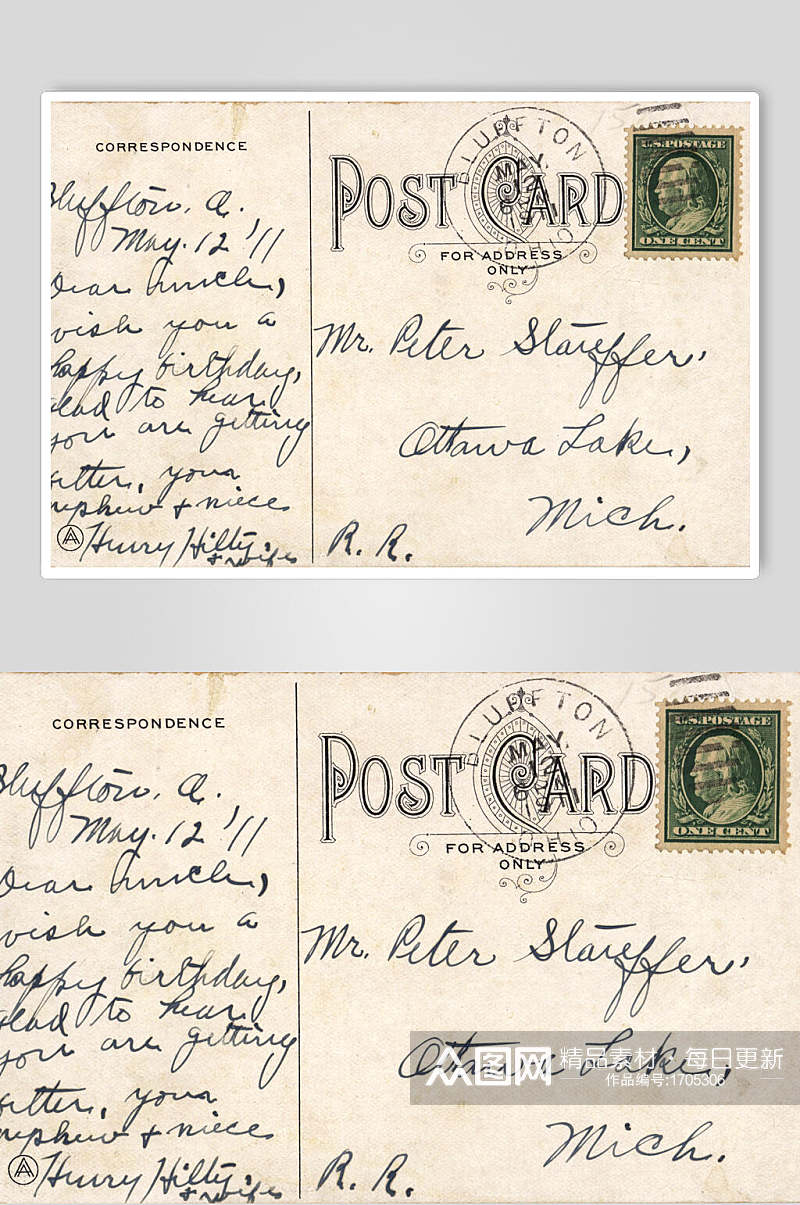 CORRESPONDENCE
Bluffton, O.
May. 12 '11
Dear Unncle,
wish you a
happy birthday,
glad to hear
you are getting
better, your
nephew & niece
Henry Hilty.
+ wife
BLUFFTON
MAY
OHIO
POST CARD
FOR ADDRESS
ONLY
U.S. POSTAGE
ONE CENT
15
Mr. Peter Stauffer,
Ottawa Lake,
Mich.
R. R.
CORRESPONDENCE
Bluffton, O.
May. 12 '11
Dear Unncle,
wish you a
happy birthday,
glad to hear
you are getting
better, your
nephew & niece
Henry Hilty.
+ wife
BLUFFTON
MAY
OHIO
POST CARD
FOR ADDRESS
ONLY
U.S. POSTAGE
ONE CENT
15
Mr. Peter Stauffer,
Ottawa Lake,
Mich.
R. R.
众图网
精品素材·每日更新
作品编号:1705306